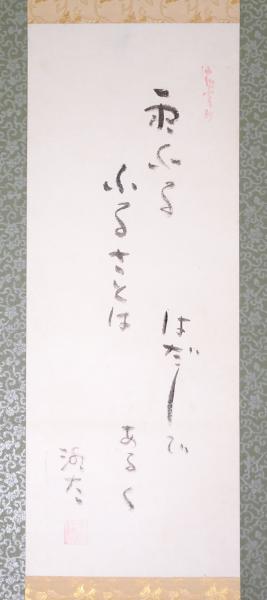 雨ふる
ふるさとは
はだしで
あるく